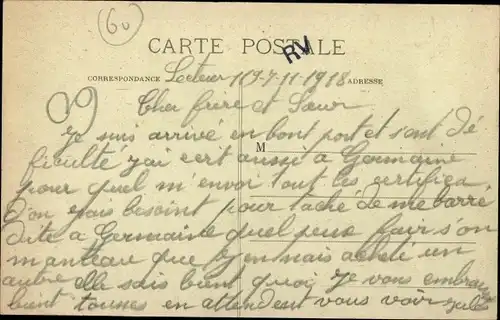 60
CARTE POSTALE
RV
CORRESPONDANCE
Lectour 119-7-11-1918
ADRESSE
Cher frere et Sœur
M
Je suis arrivé en bont port et sant dé
ficulté j'ai ecrit aussi a Germaine
pour quel m'envoi tout les certifica
d'on jais besoint pour taché de me barré
dite a Germaine quel peux fair s'on
manteau que j'en nais acheté un
autre elle sais bient quoi Je vous embrasse
bient tousses en attendent vous voir